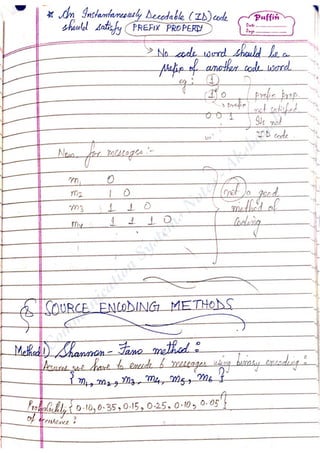 * An Instantaneously Decodable (ID) code
should satisfy PREFIX PROPERTY
Puffin
Date
Page
→ No code word should be a
prefix of another code word
eg: 1
1 0
→ prefix
0 0 1
prefix prop.
not satisfied
So not
ID code
Now, for messages:-
m1 0
m2 1 0
m3 1 1 0
m4 1 1 1 0
not a good
method of
coding
SOURCE ENCODING METHODS
Method 1) Shannon - Fano method:
Assume we have to encode 6 messages using binary encoding:
{m1, m2, m3, m4, m5, m6}
Probability {0.10, 0.35, 0.15, 0.25, 0.10, 0.05}
of occurence: